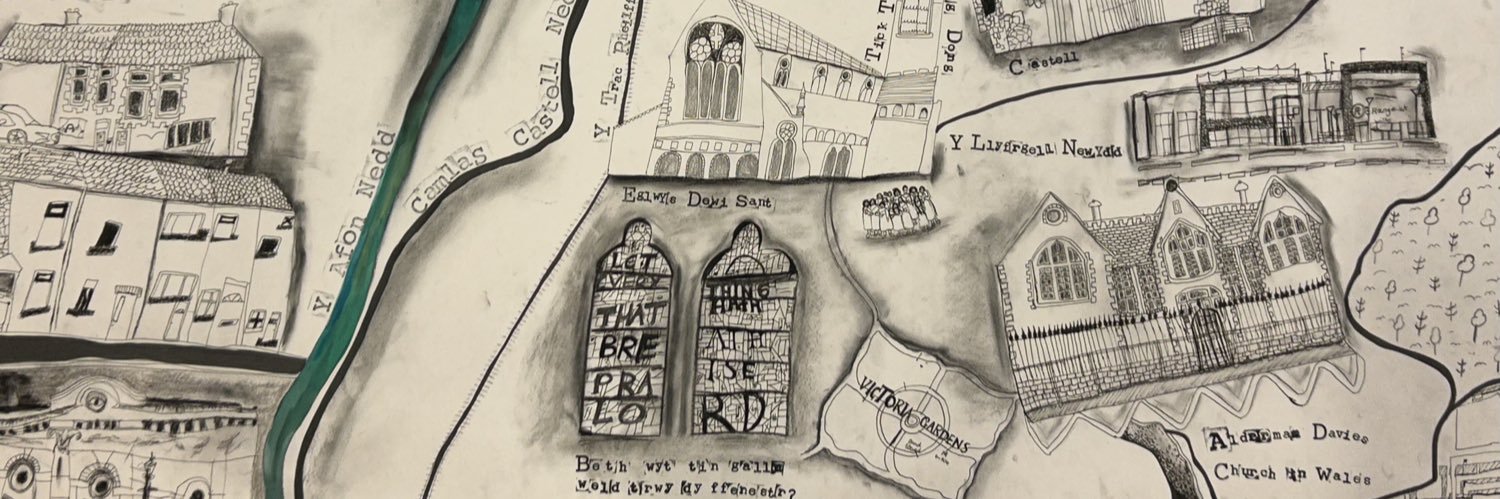 Y Afon Nedd
Camlas Castell Nedd
Y Trac Rheilff
Tick T
g Dong
Castell
Y Llyfrgell Newydd
Eglwys Dewi Sant
LET
EVERY
THAT
BRE
PRA
LO
THING
HATH
ATH
ISE
RD
VICTORIA GARDENS
Beth wyt ti'n gallu
weld trwy dy ffenestr?
Alderman Davies
Church in Wales